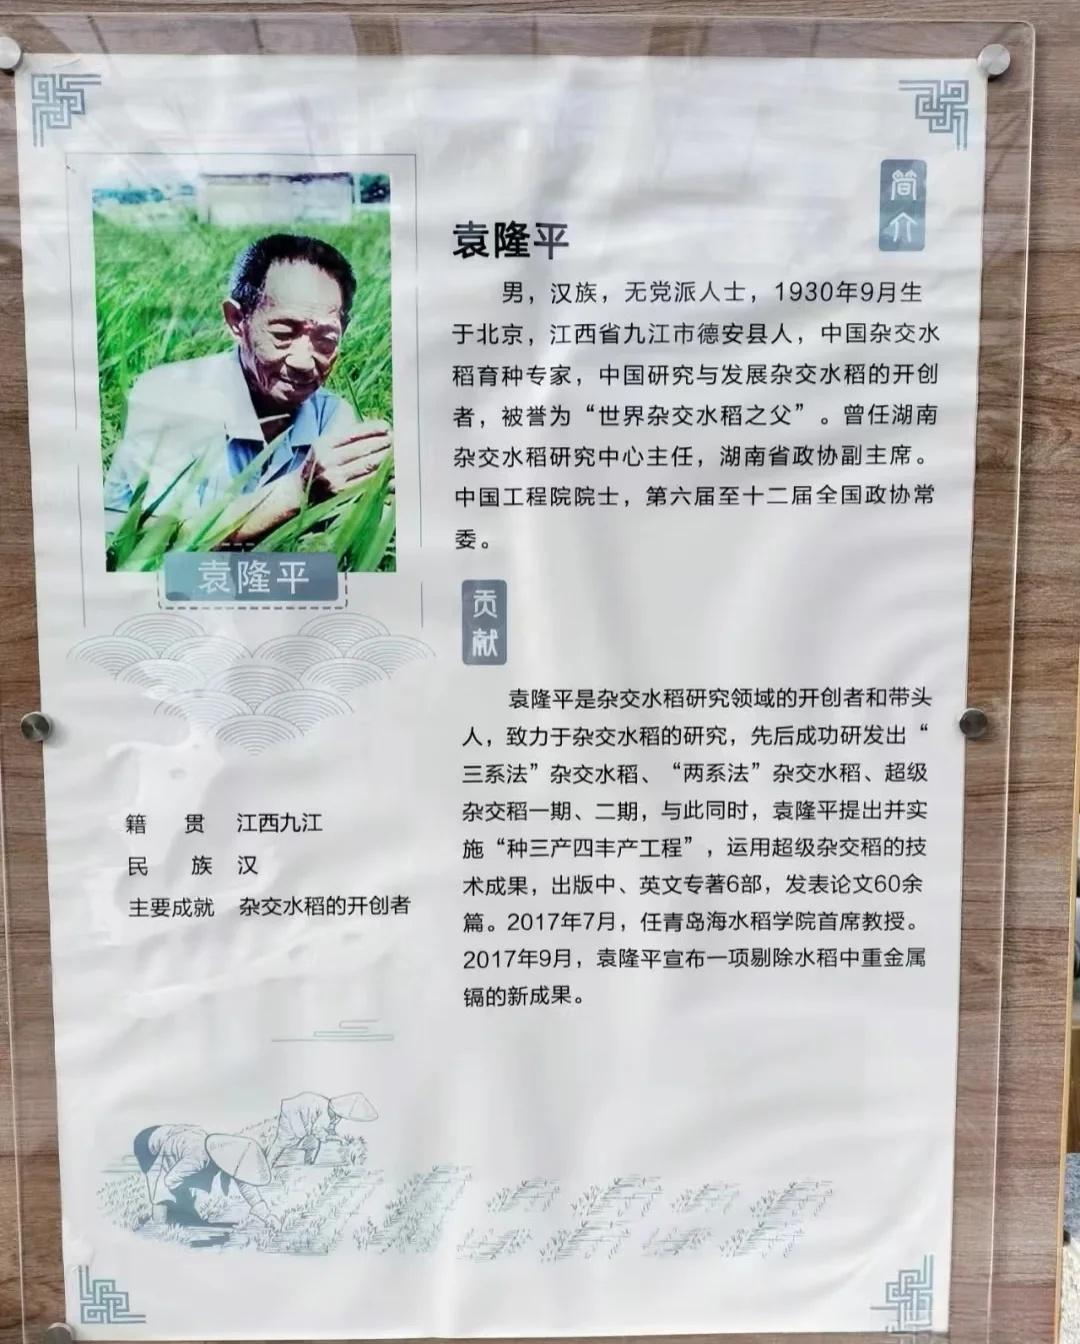 简介
袁隆平
男，汉族，无党派人士，1930年9月生
于北京，江西省九江市德安县人，中国杂交水
稻育种专家，中国研究与发展杂交水稻的开创
者，被誉为“世界杂交水稻之父”。曾任湖南
杂交水稻研究中心主任，湖南省政协副主席。
中国工程院院士，第六届至十二届全国政协常
委。
袁隆平
贡献
袁隆平是杂交水稻研究领域的开创者和带头
人，致力于杂交水稻的研究，先后成功研发出“
三系法”杂交水稻、“两系法”杂交水稻、超级
杂交稻一期、二期，与此同时，袁隆平提出并实
施“种三产四丰产工程”，运用超级杂交稻的技
术成果，出版中、英文专著6部，发表论文60余
篇。2017年7月，任青岛海水稻学院首席教授。
2017年9月，袁隆平宣布一项剔除水稻中重金属
镉的新成果。
籍 贯 江西九江
民 族 汉
主要成就 杂交水稻的开创者